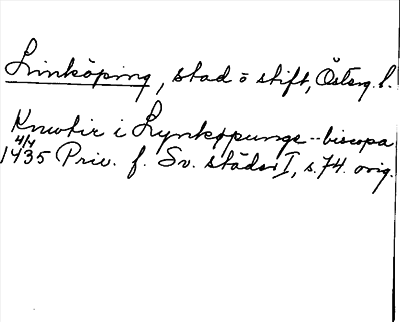 Linköping, stad o stift, Österg. l.
Knwtir i Lynkøpungs--biscopa
4/4
1435 Priv. f. Sv. städer I, s. 74. orig.